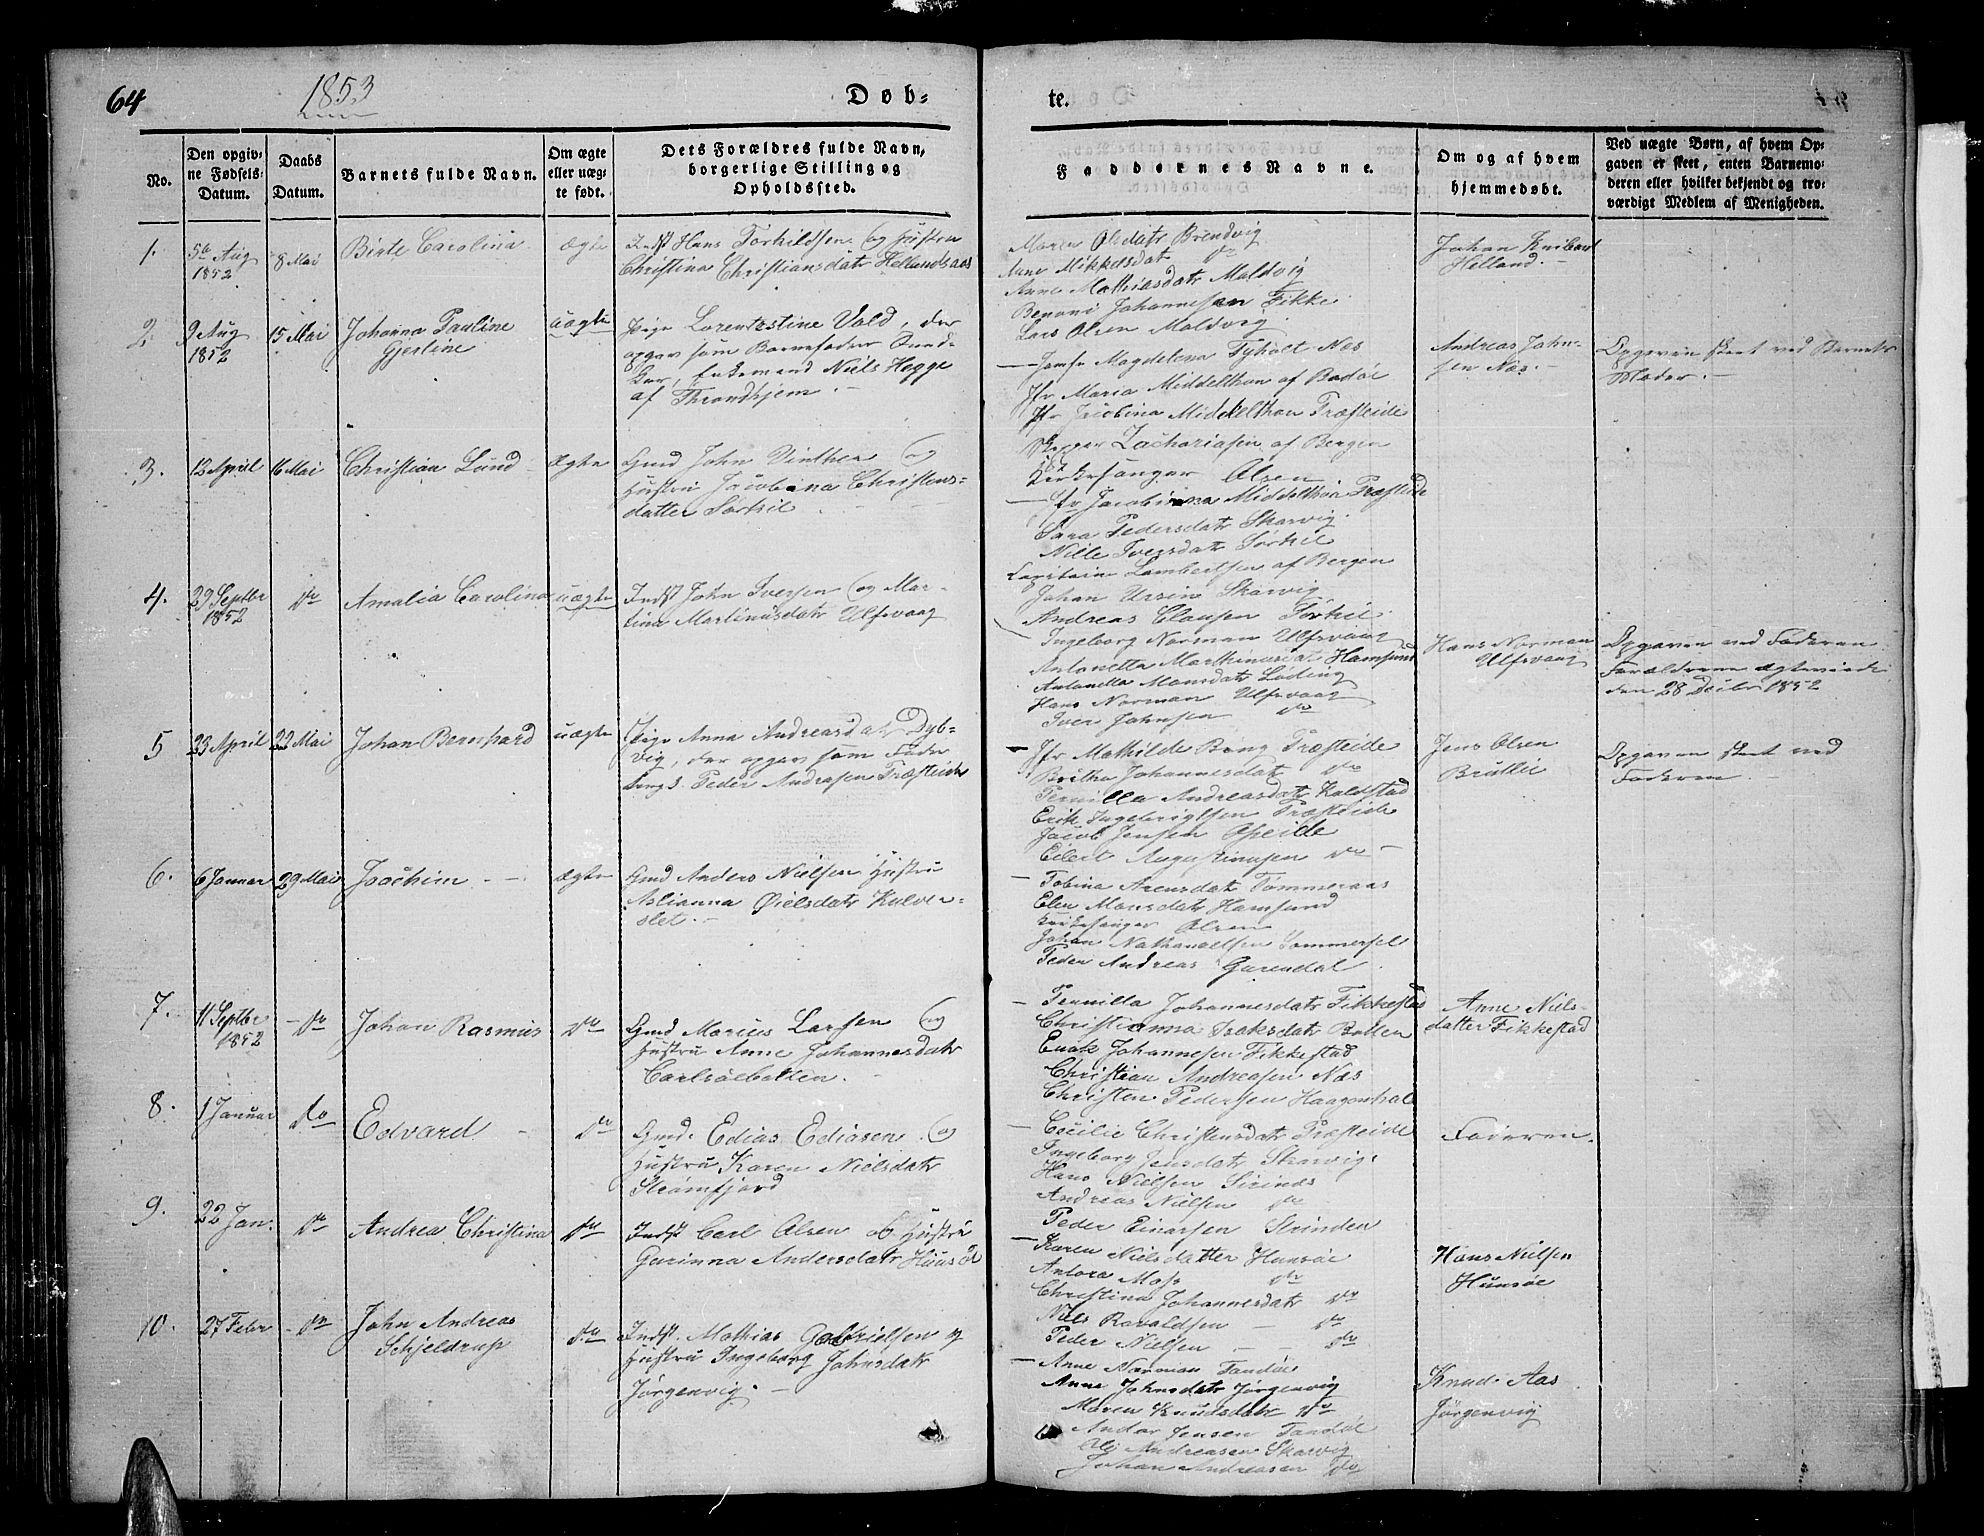 64
1853
Døb-
te.
No.
Den opgiv-
ne Fødsels-
Datum.
Daabs
Datum.
Barnets fulde Navn.
Om ægte
eller uæg-
te født.
Dets Forældres fulde Navn,
borgerlige Stilling og
Opholdssted.
Faddernes Navne.
Om og af hvem
hjemmedøbt.
Ved uægte Børn, af hvem Op-
gaven er skeet, enten Barnemo-
deren eller hvilket bekjendt og tro-
værdigt Medlem af Menigheden.
1.
5te Aug
1852
8 Mai
Birte Carolina
Ægte
Indst Hans Torkildsen og Hustru
Christina Christiansdatr Hellandsaas
Maren Olsdatr Brendvig
Anne Mikkelsdat do
Anne Mathiasdatr Maldvig
Benoni Johannesen Fikke
Lars Olsen Maldvig
Johan
Helland.
2.
9 Aug
1852
15 Mai
Johanna Pauline
Gjertine
uægte
Pige Lorentestine Vold, der
opgav som Barnefader Sned-
ker, Enkemand Niels Hegge
af Throndhjem.
Magdelena Tyholt Næs
Jfr Maria Middelthon af Bodøe
Jfr Jacobina Middelthon Præsteide
Skipper Zachariasen af Bergen
Kirkesanger Olsen
Andreas John-
sen Næs.
Opgaven skeet ved Barnets
Moder.
3.
12 April
16 Mai
Christian Lund
Ægte
Gmd John Vinther og
Hustru Jacobina Christens-
datter Sørkil
Jfr Jacobina Middelthon Præsteide
Sara Pedersdatr Skarvig
Nille Iversdatr Sørkil
Capitain Lambertsen af Bergen
Johan Ursin Skarvig
Andreas Clausen Sørkil
4.
29 Septbr
1852
do
Amalia Carolina
uægte
Indst John Iversen og Mar-
tina Martinusdatr Ulfsvaag
Ingeborg Norman Ulfsvaag
Antonetta Marthinusdat Hamsund
Antonella Monsdatr Løding
Hans Norman Ulfsvaag
Iver Johnsen do
Hans Norman
Ulfsvaag
Opgaven ved Faderen
Forældrene ægteviede
den 28 Decbr 1852
5
23 April
22 Mai
Johan Bernhard
uægte
Pige Anna Andreasdat Dyb-
vig, der opgav som Fader
Ungk. Peder Andreasen Præsteide
Jfr Mathilde Bøng Præsteide
Britha Johannesdat do
Pernilla Andreasdatr Kaldstad
Erik Ingebrigtsen Præsteide
Jacob Jensen Opeide
Eilert Augustinusen do
Jens Olsen
Opgaven skeet ved
Faderen.
6.
6 Januar
29 Mai
Joachim
Ægte
Gmd Anders Nielsen Hustru
Aslianna Øielsdatr Kulver-
slet.
Tobina Arensdatr Tømmeraas
Elen Monsdatr Hamsund
Kirkesanger Olsen
Johan Nathanaelsen Sommersel
Peder Andreas Gurendal
7.
11 Septbr
1852
do
Johan Rasmus
do
Gmd Marius Larsen og
Hustru Anne Johannesdatr
Carlsøebotten.
Pernilla Johannesdatr Fikkestad
Christianna Isaksdatr Botten
Enok Johannesen Fikkestad
Christian Andreasen Næs
Christen Pedersen Haagenthal
Anne Niels
datter Fikkestad
8.
1 Januar
do
Edvard
do
Gmd. Edias Ediasen og
Hustru Karen Nielsdatr
Strømfjord
Cecilie Christensdatr Præsteide
Ingeborg Jensdatr Skarvig
Hans Nielsen Sirinæs
Andreas Nielsen do
Peder Einarsen Strinden
Faderen.
9.
22 Jan.
do
Andrea Christina
do
Indst Carl Olsen og Hustru
Gurinna Andersdatr Huusøe
Karen Nielsdatter Hunsøe
Antora Moss do
Christina Johannesdatr do
Niels Ravaldsen do
Peder Nielsen do
Hans Nielsen
Hunsøe
10.
27 Febr
do
John Andreas
Schjeldrup
do
Indst. Mathias Gabrielsen og
Hustru Ingeborg Johnsdatr
Jørgenvig.
Anne Norman Tandøe
Anne Johnsdatr Jørgenvig
Maren Knudsdatr do
Andor Jensen Tandøe
Ole Andreasen Skarvig
Johan Andreasen do
Knud Aas
Jørgenvig